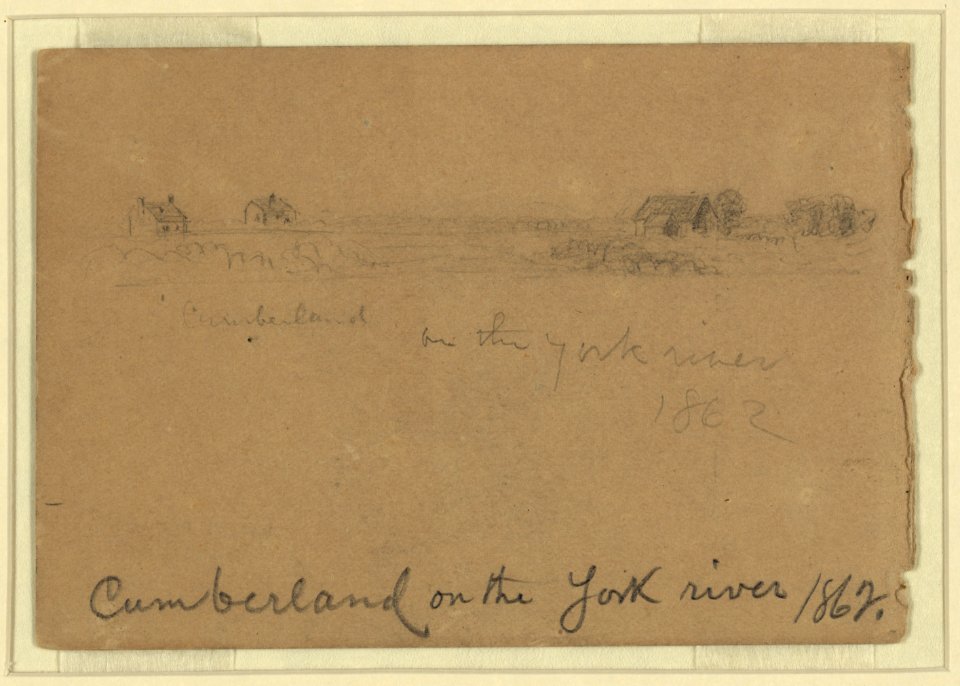 Cumberland
on the York river
1862
Cumberland on the York river 1862.